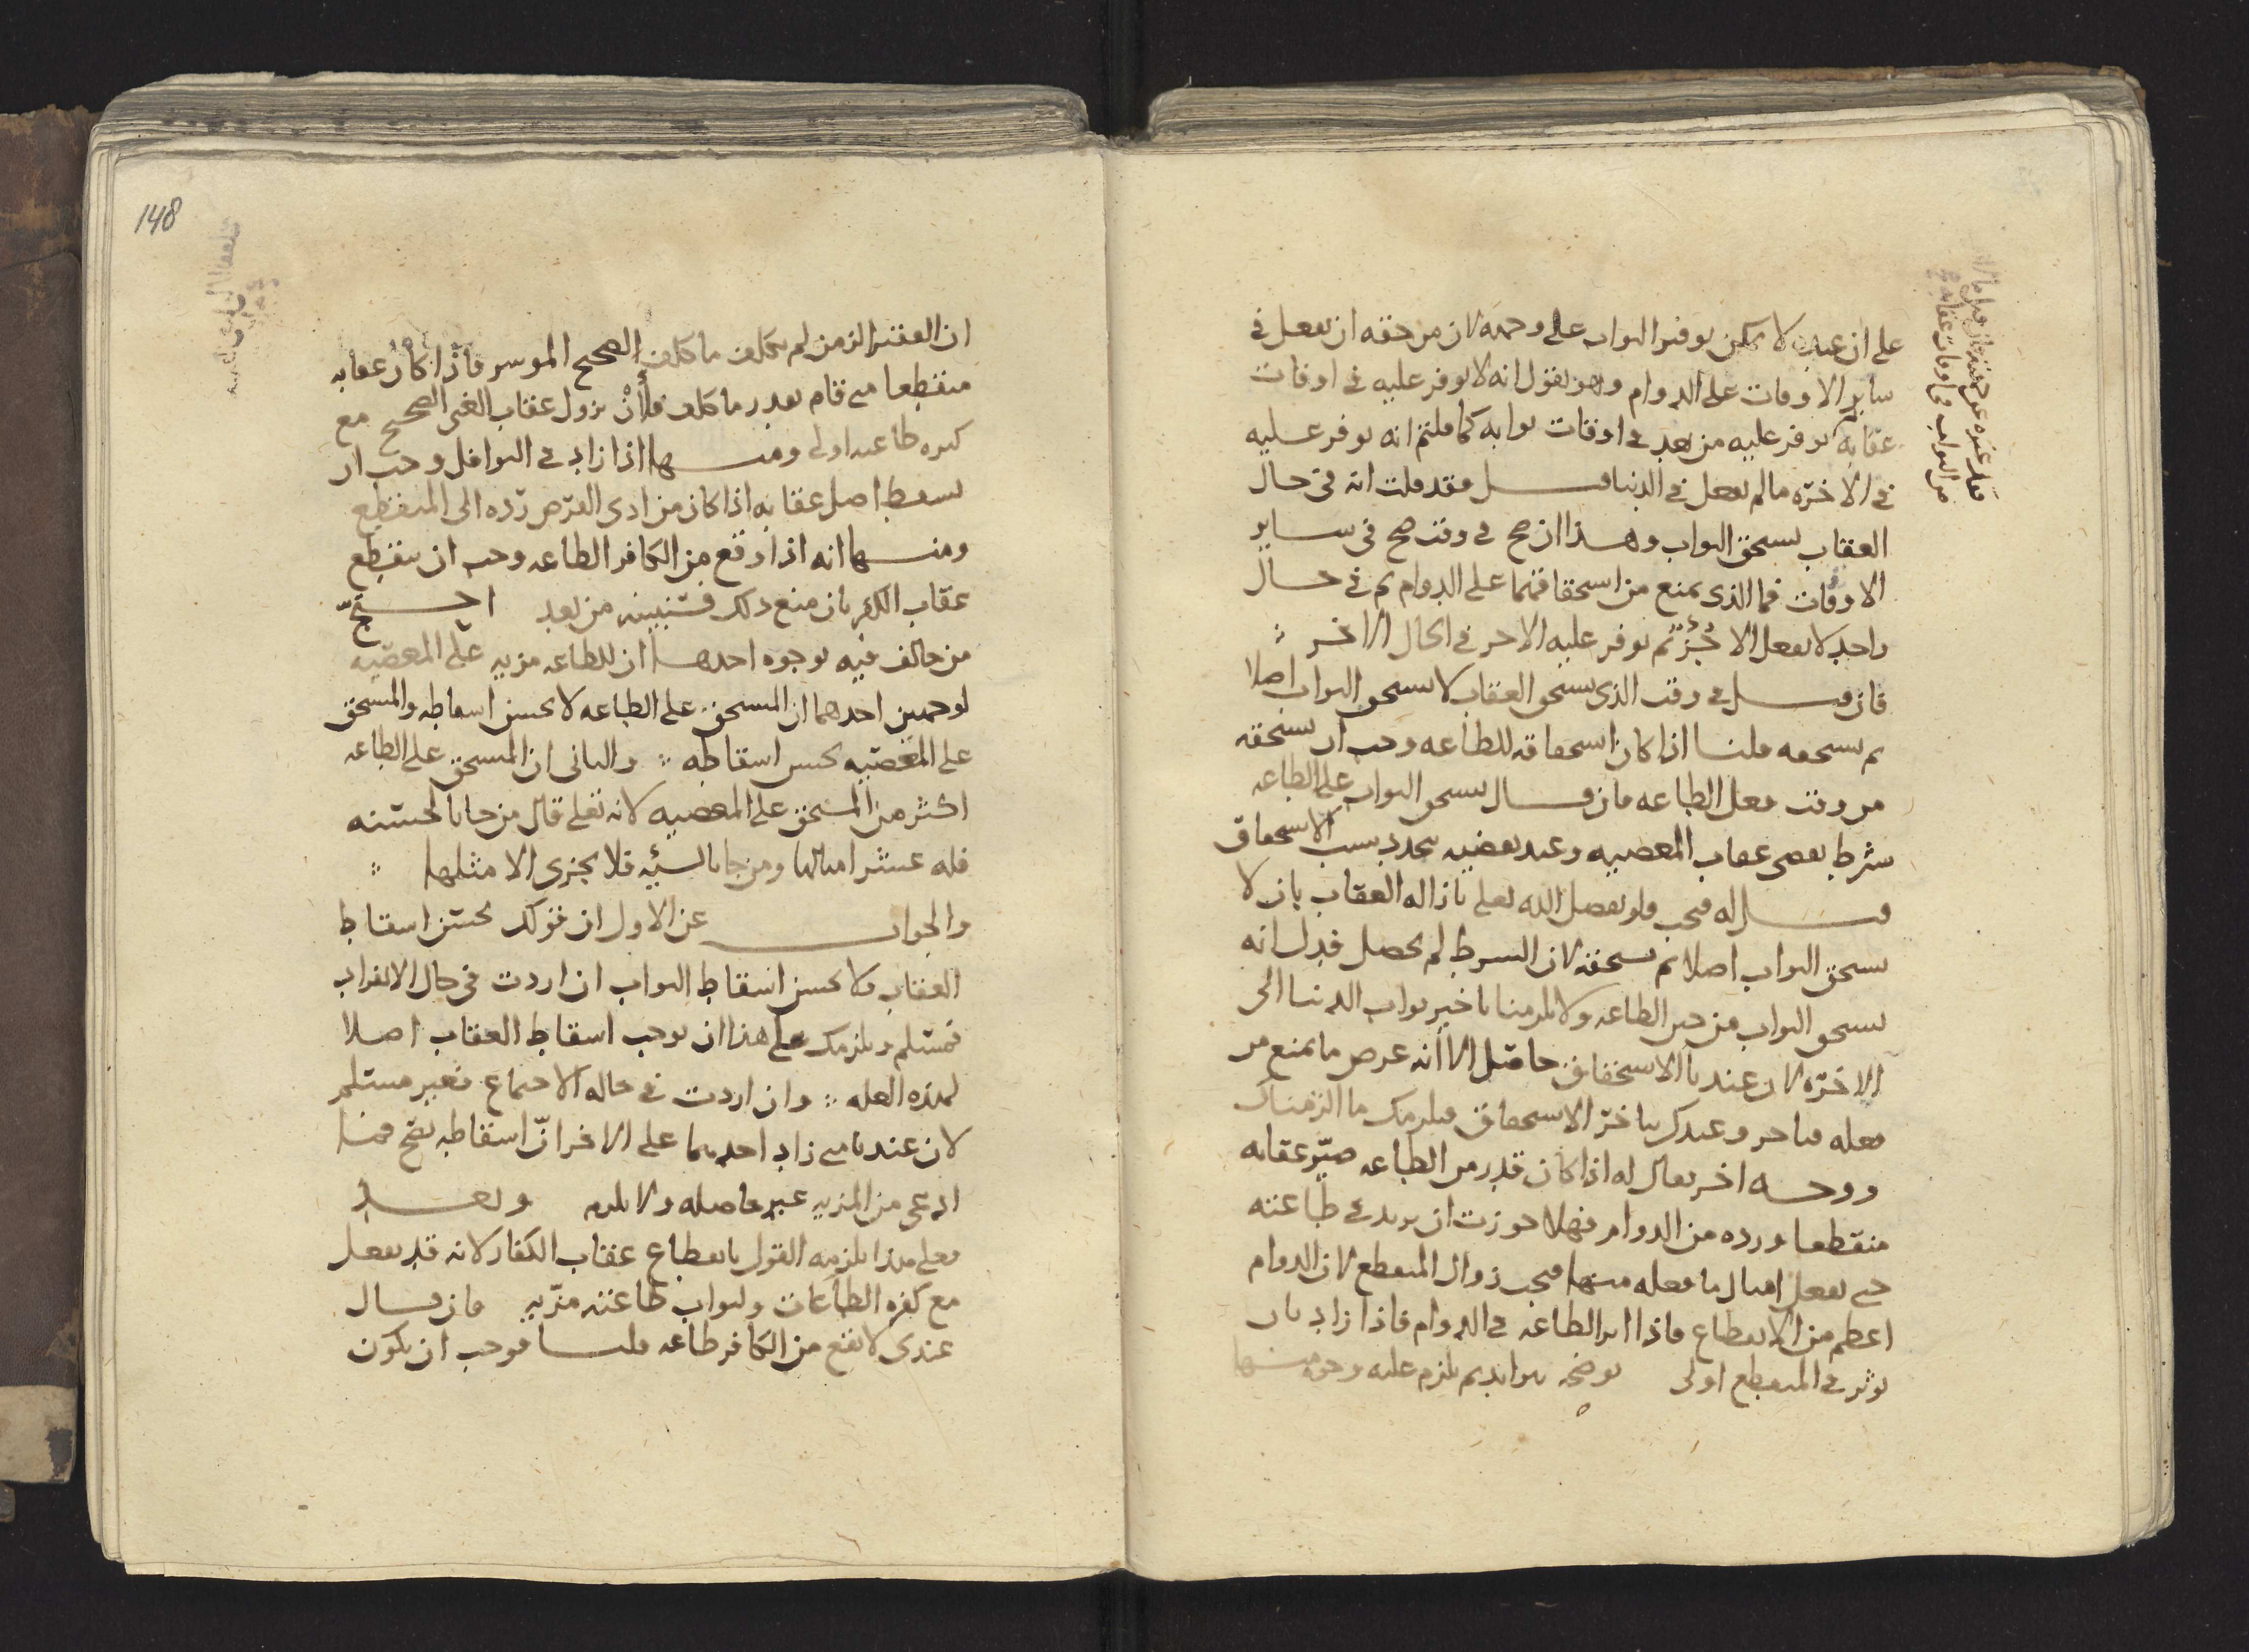 على ان عنده لا يمكن توفير الثواب على وجهه لان من حقه ان يفعل في
ساير الاوقات على الدوام وهو يقول انه لا يوفر عليه في اوقات
عقابه ثم يوفر عليه من بعد في اوقات ثوابه كما قلتم انه يوفر عليه
في الاخرة ما لم يفعل في الدنيا قيل فقد قلت انه في حال
العقاب يستحق الثواب وهذا ان صح في وقت صح في ساير
الاوقات فما الذي يمنع من استحقاقهما على الدوام ثم في حال
واحد لا يفعل الا جُزءٌ ثم يوفر عليه الاخر في الحال الاخر
فان قيل في وقت الذي يستحق العقاب لا يستحق الثواب اصلا
ثم يستحقه قلنا اذا كان استحقاقه للطاعه وجب ان يستحقه
من وقت فعل الطاعه فان قال يستحق الثواب على الطاعه
بشرط تقضي عقاب المعصيه وعند تقضيه يتجدد سبب الاستحقاق
قيل له فيجب ولو تفضل الله تعلى بازاله العقاب بان لا
يستحق الثواب اصلا ثم يستحقه لان الشرط لم يحصل فدل انه
يستحق الثواب من حين الطاعه ولا يلزمنا تاخير ثواب الدنيا الى
الاخرة لان عندنا الاستحقاق حاصل الا انه عرض ما يمنع من
فعله فتاخر وعندك يتاخر الاستحقاق فيلزمك ما الزمناك
ووجه اخر يقال له اذا كان قدر من الطاعه صيّر عقابه
منقطعا ورده من الدوام فهلا جوزت ان يزيد في طاعته
حتى يفعل امثال ما فعله منها فيجب زوال المنقطع لان الدوام
اعظم من الانقطاع فاذا اثر الطاعه في الدوام فاذا زاد بان
يوثر في المنقطع اولى يوضحه ثوابه ثم يلزم عليه وجوه منها
ان الفقير الزمن لم يكلف ما كلف الصحيح الموسر فاذا كان عقابه
منقطعا متى قام بقدر ما كلف فلأنْ يزول عقاب الغني الصحيح مع
كثرة طاعته اولى ومنها اذا زاد في النوافل وجب ان
يسقط اصل عقابه اذا كان من ادى الفرض رده الى المنقطع
ومنها انه اذا وقع من الكافر الطاعه وجب ان ينقطع
عقاب الكفر فان منع ذلك فسنبينه من بعد احتجّ
من خالف فيه بوجوه احدها ان للطاعه مزيه على المعصيه
لوجهين احدهما ان المستحق على الطاعه لا يحسن اسقاطه والمستحق
على المعصيه يحسن اسقاطه والثاني ان المستحق على الطاعه
اكثر من المستحق على المعصيه لانه تعلى قال من جا بالحسنه
فله عشر امثالها ومن جا بالسيّه فلا يجزى الا مثلها
والجواب عن الاول ان قولك يحسن اسقاط
العقاب ولا يحسن اسقاط الثواب ان اردت في حال الانفراد
فمسلم ويلزمك على هذا ان يوجب اسقاط العقاب اصلا
لهذه العله وان اردت في حاله الاجتماع فغير مسلم
لان عندنا متى زاد احدهما على الاخر انّ اسقاطه يقبح فما
ادعى من المزيه غير حاصله ولا يلزم وبعد
فعلى هذا يلزمه القول بانقطاع عقاب الكفار لانه قد يفعل
مع كفره الطاعات ولثواب طاعته مزيه فان قال
عندي لا يقع من الكافر طاعه قلنا فوجب ان يكون
148